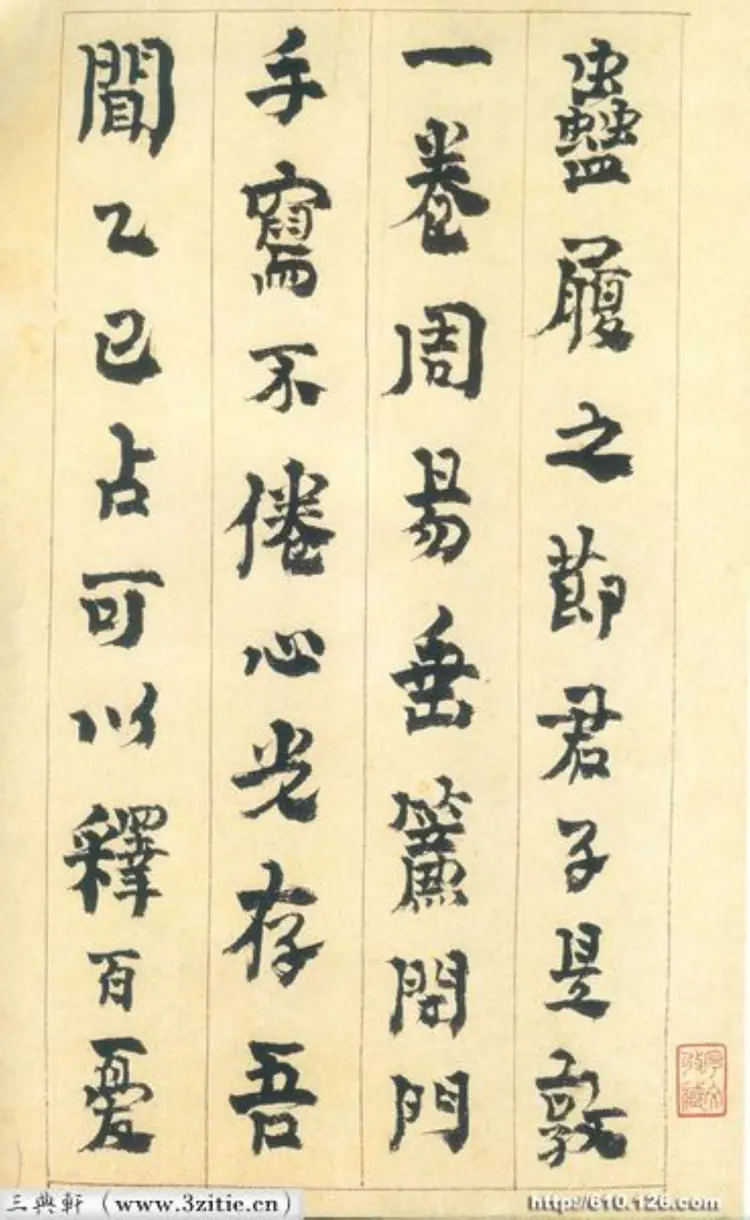 蠱履之節君子是敦
一卷周易垂簾閉門
手寫不倦心光存吾
聞之巳占可以釋百憂
三典軒（www.3zitie.cn）
http://610.126.com